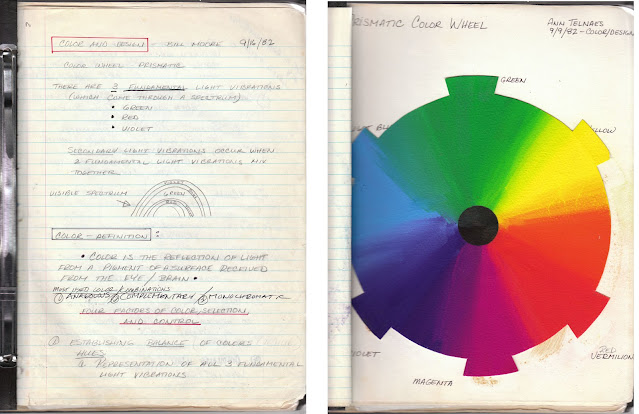 COLOR AND DESIGN - BILL MOORE 9/16/82
COLOR WHEEL PRISMATIC
THERE ARE 3 FUNDAMENTAL LIGHT VIBRATIONS
(WHICH COME THROUGH A SPECTRUM)
• GREEN
• RED
• VIOLET
SECONDARY LIGHT VIBRATIONS OCCUR WHEN
2 FUNDAMENTAL LIGHT VIBRATIONS MIX
TOGETHER.
VISIBLE SPECTRUM
VIOLET
GREEN
RED
COLOR - DEFINITION:
• COLOR IS THE REFLECTION OF LIGHT
FROM A PIGMENT OF A SURFACE RECEIVED
FROM THE EYE/BRAIN •
MOST USED COLOR KOMBINATIONS
① ANALGOUS ② COMPLEMENTARY ③ MONOCHROMATIC
FOUR FACTORS OF COLOR SELECTION
AND CONTROL
① ESTABLISHING BALANCE OF COLORS
HUES
REPRESENTATION OF ALL 3 FUNDAMENTAL
LIGHT VIBRATIONS
RISMATIC COLOR WHEEL
ANN TELNAES
9/9/82 - COLOR/DESIGN
GREEN
LLOW
RED
VERMILION
MAGENTA
IOLET